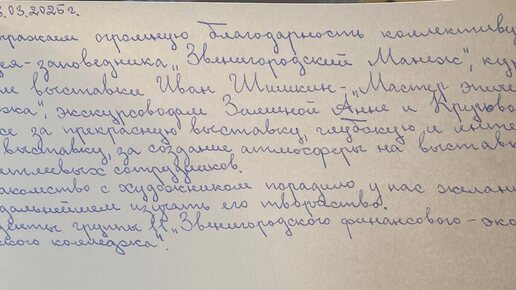 .03.2025г.
ражаем огромную благодарность коллективу
ея-заповедника „Звенигородский Манеж", кур
м выставки Иван Шишкин-„Мастер
жа", экскурсоводам Зиминой Анне и
се за прекрасную выставку, глубокую и инте
выставку, за создание атмосферы на выстав
сотрудников.
акомство с художником породило у нас желани
дальнейшем изучать его творчество.
денты группы 11 „Звенигородского финансового-эко
ского колледжа".